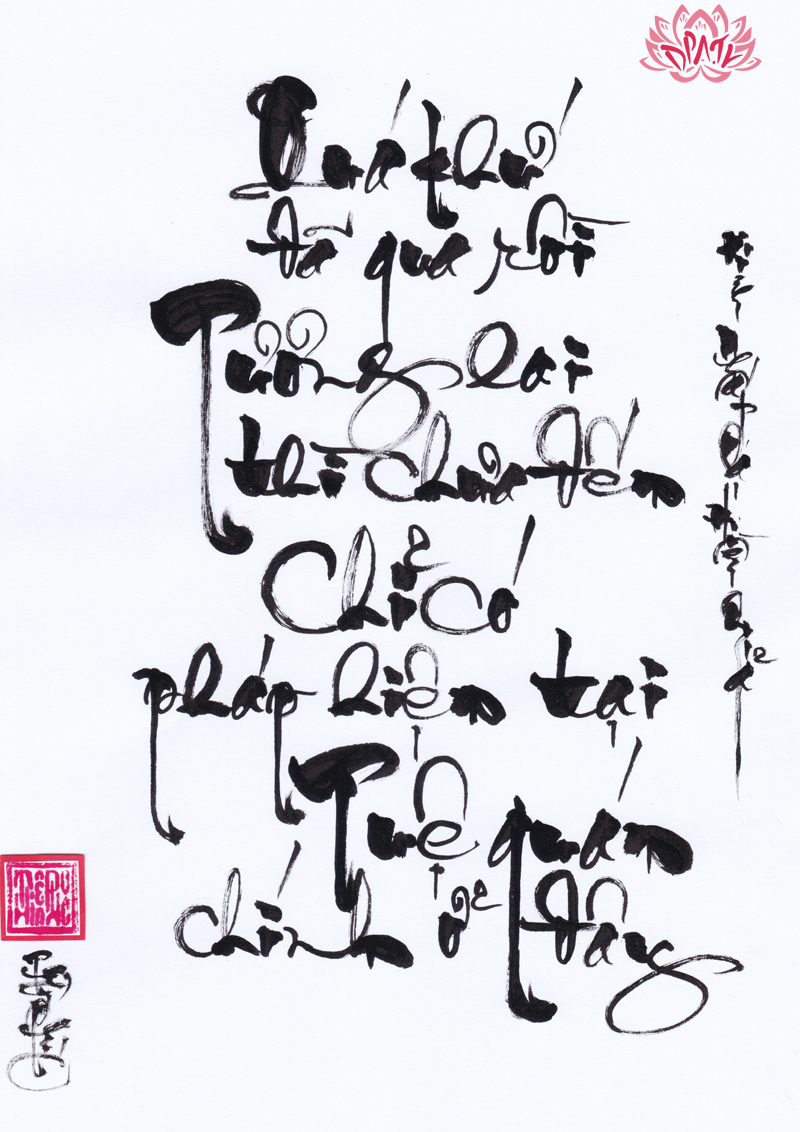 DPATK
Quá khứ
đã qua rồi
Tương lai
thì chưa đến
Chỉ có
pháp hiện tại
Tuệ quán
chính ở đây